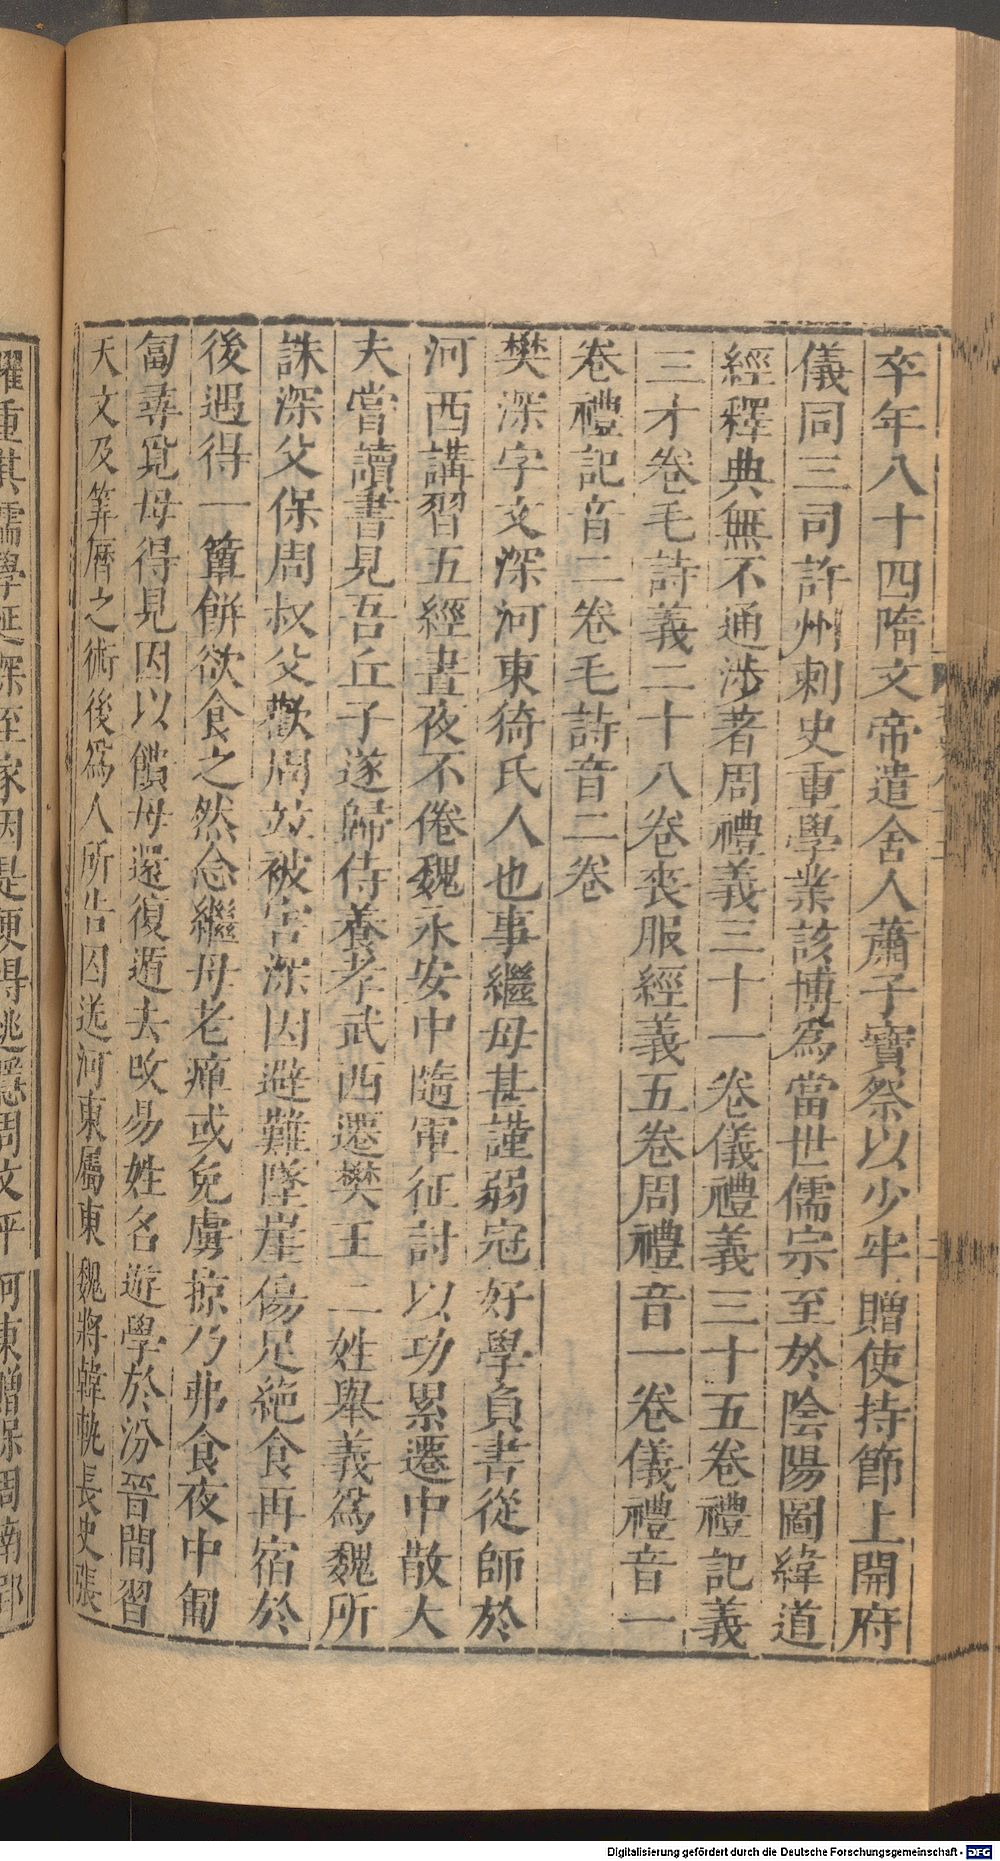 卒年八十四隋文帝遣舍人蕭子寶祭以少牢贈使持節上開府
儀同三司許州刺史重學業該博爲當世儒宗至於陰陽圖緯道
經釋典無不通涉著周禮義三十一卷儀禮義三十五卷禮記義
三才卷毛詩義二十八卷喪服經義五卷周禮音一卷儀禮音一
卷禮記音二卷毛詩音二卷
樊深字文深河東猗氏人也事繼母甚謹弱冠好學負書從師於
河西講習五經晝夜不倦魏永安中隨軍征討以功累遷中散大
夫嘗讀書見吾丘子遂歸侍養孝武西遷樊王二姓舉義爲魏所
誅深父保周叔父歡周並被害深因避難墜崖傷足絶食再宿於
後遇得一簞餅欲食之然念繼母老痺或免虜掠乃弗食夜中匍
匐尋覓母得見因以饋母還復遁去改易姓名遊學於汾晉間習
天文及筭曆之術後爲人所告囚送河東屬東魏將韓軌長史張
曜重其儒學延深至家因是更得逃隱周文平河東贈保周南郢
Digitalisierung gefördert durch die Deutsche Forschungsgemeinschaft - DFG